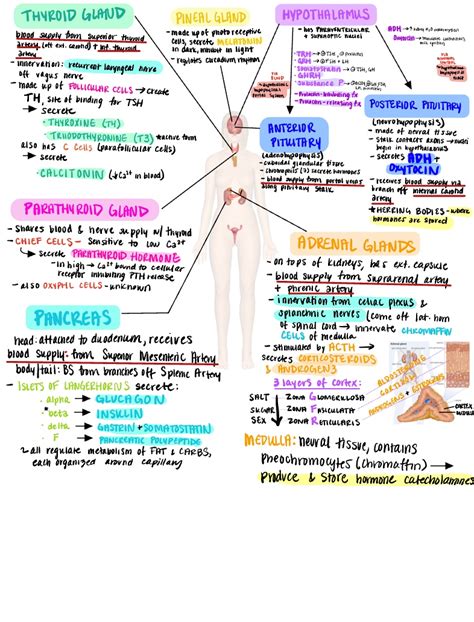 THYROID GLAND
blood supply from superior thyroid
artery (off ext. carotid) & inf. thyroid
artery
- innervation: recurrent laryngeal nerve
off vagus nerve
- made up of FOLLICULAR CELLS → create
TH, site of binding for TSH
→ secrete
· THYROXINE (T4)
· TRIIODOTHYRONINE (T3) → active form
also has C CELLS (parafollicular cells)
→ secrete
· CALCITONIN (↓Ca²⁺ in blood)
PINEAL GLAND
- made up of photoreceptive
cells, secretes MELATONIN
in dark, inhibit in light
- regulates circadian rhythm
HYPOTHALAMUS
- has PARAVENTRICULAR
& SUPRAOPTIC nuclei
TRH
GnRH
Somatostatin
GHRH
Substance P
Prolactin-inhibiting fx
Prolactin-releasing fx
ADH
Oxytocin
ANTERIOR
PITUITARY
(adenohypophysis)
- cuboidal glandular tissue
- chromophils (?) secrete hormones
- blood supply from portal veins
along pituitary stalk
POSTERIOR PITUITARY
(neurohypophysis)
- made of neural tissue
- stalk contacts axons → nuclei
begin in hypothalamus
- secretes ADH +
OXYTOCIN
- receives blood supply via
branch off internal carotid
artery
* HERRING BODIES - where
hormones are stored
PARATHYROID GLAND
- shares blood & nerve supply w/ thyroid
- CHIEF CELLS - sensitive to low Ca²⁺
→ secrete PARATHYROID HORMONE
- in high → Ca²⁺ bound to cellular
receptor inhibiting PTH release
- also OXYPHIL CELLS - unknown
ADRENAL GLANDS
- on tops of kidneys, has ext. capsule
- blood supply from suprarenal artery
+ phrenic artery
- innervation from celiac plexus &
splanchnic nerves (come off lat. horn
of spinal cord → innervate CHROMAFFIN
CELLS of medulla
- stimulated by ACTH →
secretes CORTICOSTEROIDS
& ANDROGENS
3 layers of cortex:
SALT ZONA GLOMERULOSA
SUGAR ZONA FASICULATA
SEX ZONA RETICULARIS
ALDOSTERONE
CORTISOL
ANDROGENS + ESTROGENS
CORTEX
MEDULLA
MEDULLA: neural tissue, contains
Pheochromocytes (chromaffin) →
Produce & store hormone catecholamines
PANCREAS
head: attached to duodenum, receives
blood supply: from Superior Mesenteric Artery
body/tail: BS from branches off Splenic Artery
- ISLETS OF LANGERHORNS secrete:
· alpha → GLUCAGON
· beta → INSULIN
· delta → GASTRIN + SOMATOSTATIN
· F → PANCREATIC POLYPEPTIDE
all regulate metabolism of FAT & CARBS,
each organized around capillary